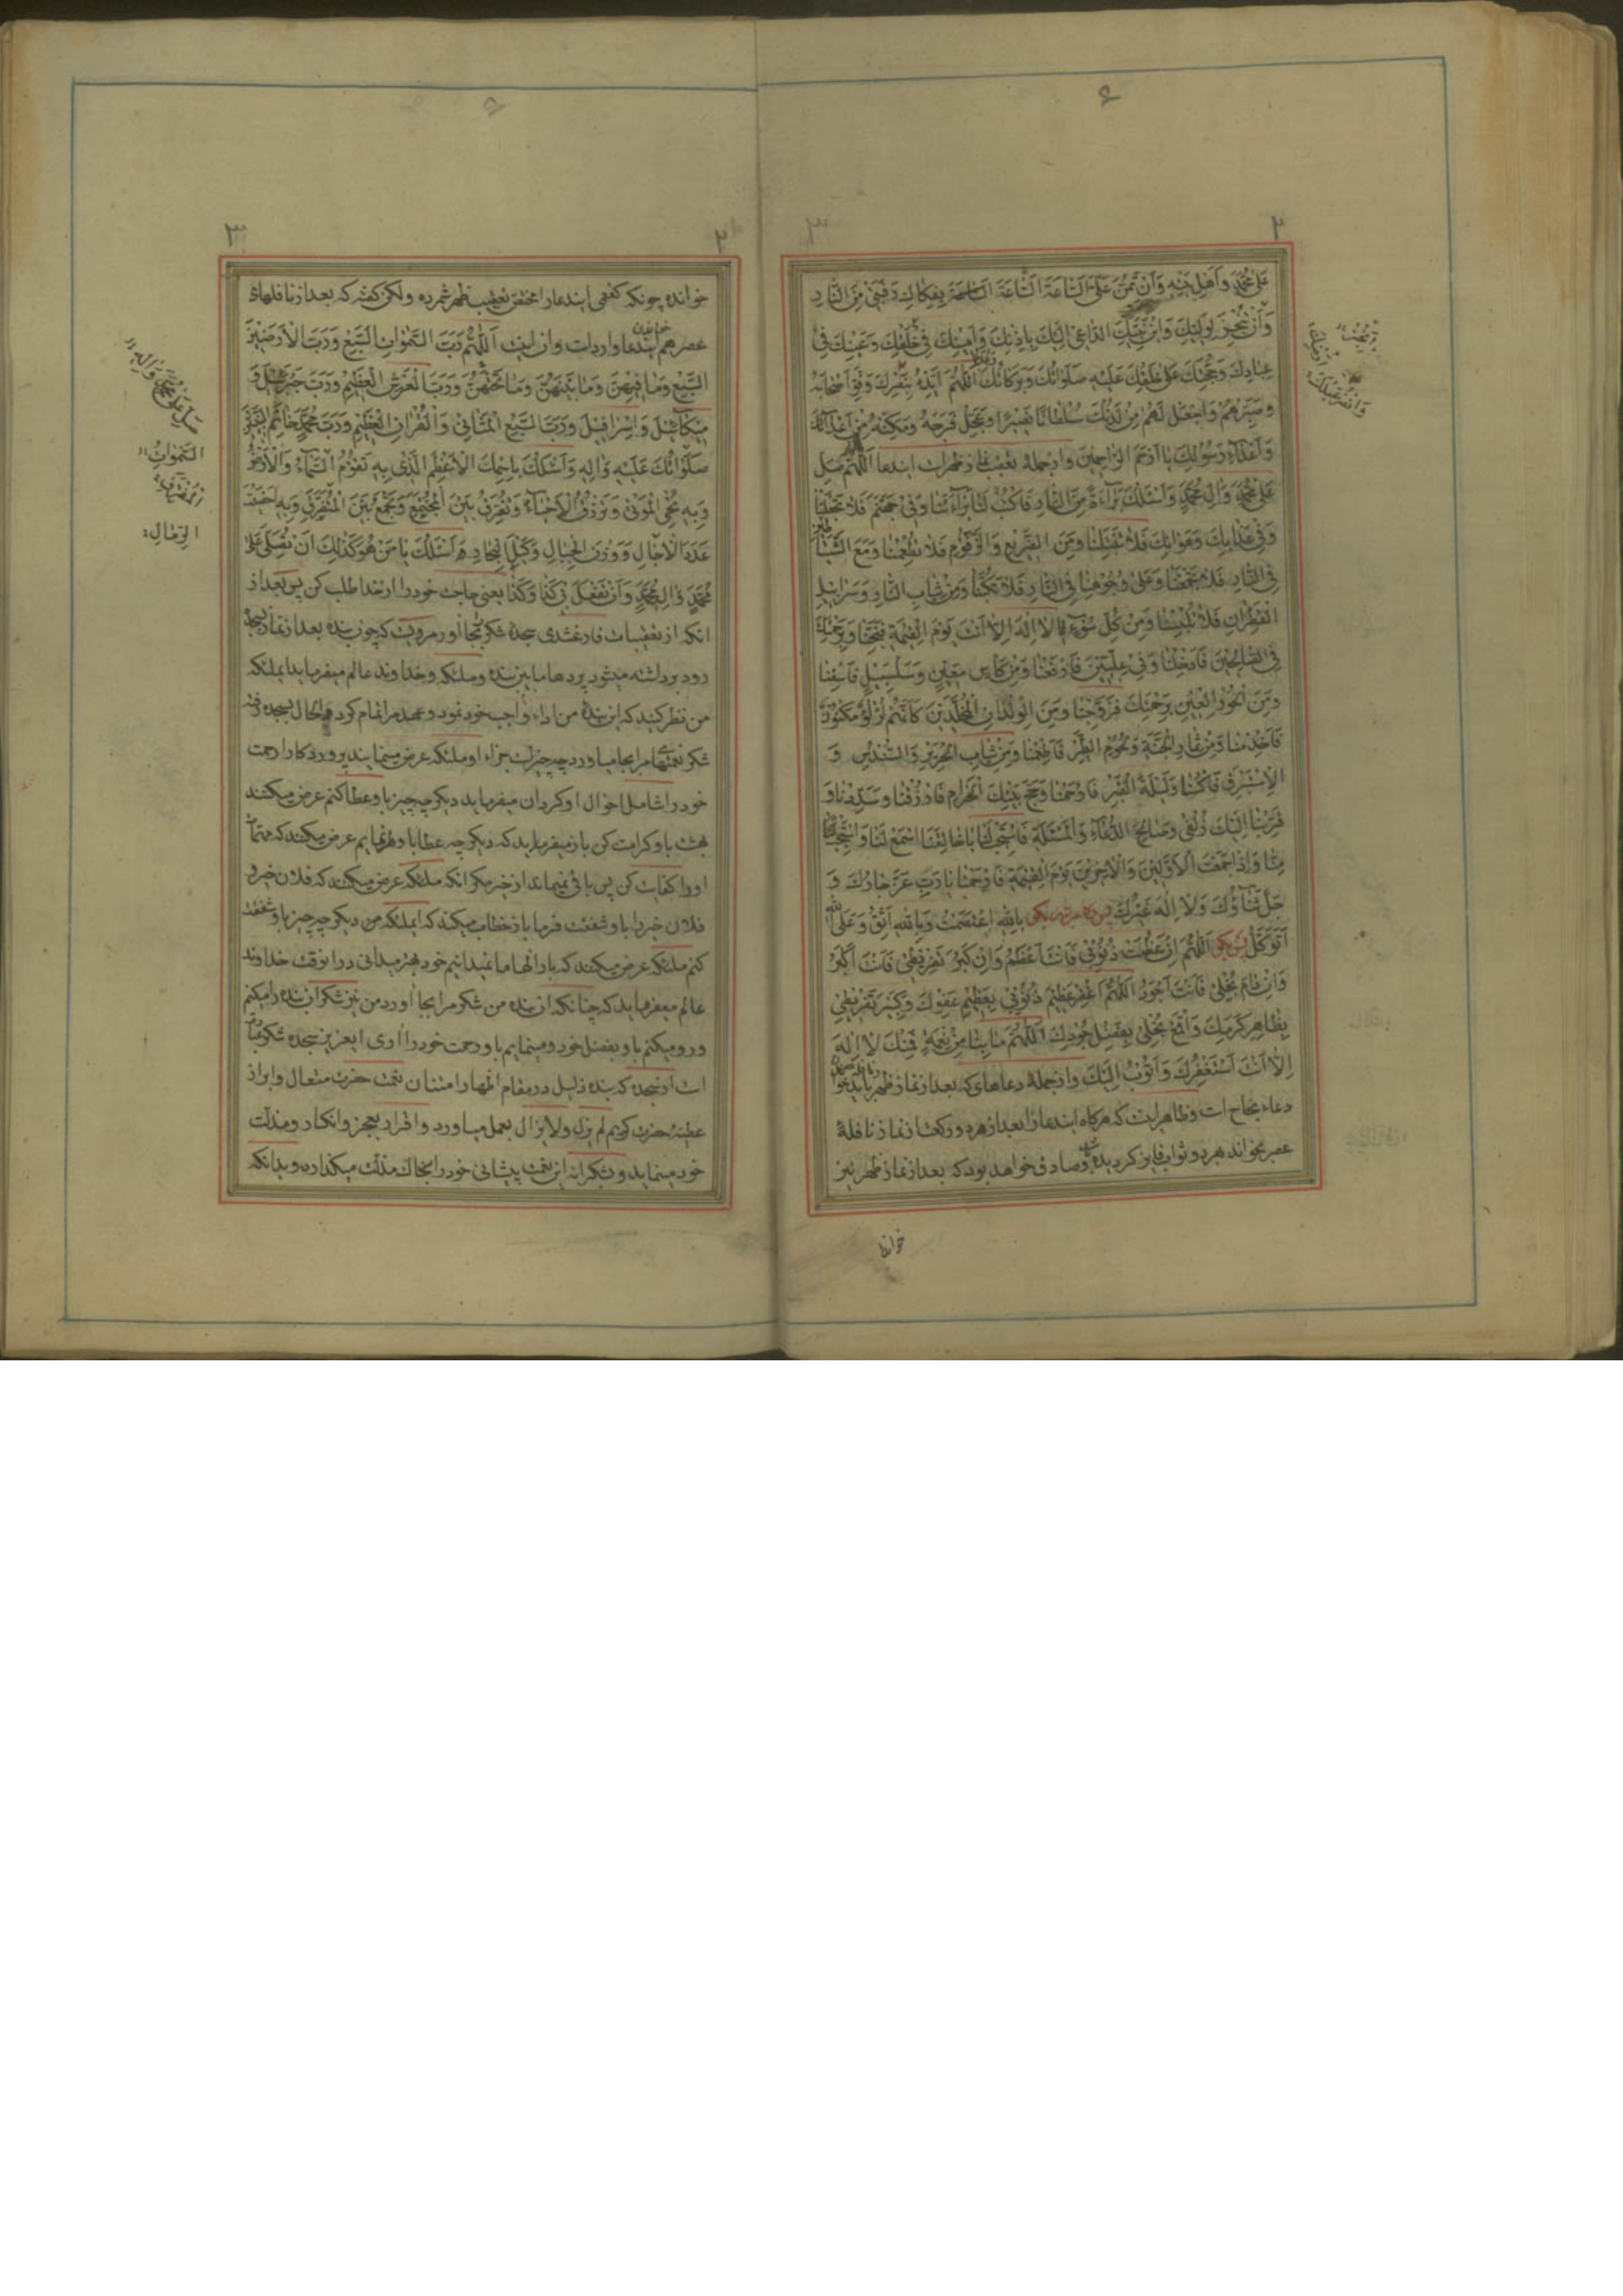 ۶
۲
۳
عَلىٰ مُحَمَّدٍ وَاَهْلِ بَيْتِهِ وَاَنْ تَمُنَّ عَلَىَّ السّاعَةَ السّاعَةَ السّاعَةَ بِفِكاكِ رَقَبَتى مِنَ النّارِ
وَاَنْ تُنْجِزَ لِوَلِيِّكَ وَابْنِ نَبِيِّكَ الدّاعى اِلَيْكَ بِاِذْنِكَ وَاَمينِكَ فى خَلْقِكَ وَعَيْنِكَ فى
عِبادِكَ وَحُجَّتِكَ عَلىٰ خَلْقِكَ عَلَيْهِ صَلَواتُكَ وَبَرَكاتُكَ اَللّهُمَّ اَيِّدْهُ بِنَصْرِكَ وَقَوِّ اَصْحابَهُ
وَصَبِّرْهُمْ وَاجْعَلْ لَهُمْ مِنْ لَدُنْكَ سُلْطانًا نَصيرًا وَعَجِّلْ فَرَجَهُ وَمَكِّنْهُ مِنْ اَعْدائِكَ
وَاَعْداءِ رَسُولِكَ يا اَرْحَمَ الرّاحِمينَ وازجمله تعقيب نماز ظهر است ايندعا اَللّهُمَّ صَلِّ
عَلىٰ مُحَمَّدٍ وَالِ مُحَمَّدٍ وَاَسْئَلُكَ بَراءَةً مِنَ النّارِ فَاكْتُبْ لَنا بَراءَتَنا وَفى جَهَنَّمَ فَلا تَجْعَلْنا
وَفى عَذابِكَ وَهَوانِكَ فَلا تَبْتَلِنا وَمِنَ الضَّريعِ وَالزَّقُّومِ فَلا تُطْعِمْنا وَمَعَ الشَّياطينِ
فِى النّارِ فَلا تَجْمَعْنا وَعَلىٰ وُجُوهِنا فِى النّارِ فَلا تَكُبَّنا وَمِنْ ثِيابِ النّارِ وَسَرابيلِ
الْقَطِرانِ فَلا تُلْبِسْنا وَمِنْ كُلِّ سُوءٍ يا لا اِلهَ اِلّا اَنْتَ يَوْمَ الْقِيمَةِ فَنَجِّنا وَبِرَحْمَتِكَ
فِى الصّالِحينَ فَاَدْخِلْنا وَفى عِلِّيّينَ فَارْفَعْنا وَمِنْ كَاْسٍ مَعينٍ وَسَلْسَبيلٍ فَاسْقِنا
وَمِنَ الْحُورِ الْعينِ بِرَحْمَتِكَ فَزَوِّجْنا وَمِنَ الْوِلْدانِ الْمُخَلَّدينَ كَاَنَّهُمْ لُؤْلُؤٌ مَكْنُونٌ
فَاَخْدِمْنا وَمِنْ ثِمارِ الْجَنَّةِ وَلُحُومِ الطَّيْرِ فَاَطْعِمْنا وَمِنْ ثِيابِ الْحَريرِ وَالسُّنْدُسِ وَ
الْاِسْتَبْرَقِ فَاكْسُنا وَلَيْلَةَ الْقَدْرِ فَارْحَمْنا وَحَجَّ بَيْتِكَ الْحَرامِ فَارْزُقْنا وَسَدِّدْنا وَ
قَرِّبْنا اِلَيْكَ زُلْفىٰ وَصالِحَ الدُّعاءِ وَالْمَسْئَلَةِ فَاسْتَجِبْ لَنا يا خالِقَنا اسْمَعْ لَنا وَاسْتَجِبْ
مِنّا وَاِذا جَمَعْتَ الْاَوَّلينَ وَالْاخِرينَ يَوْمَ الْقِيمَةِ فَارْحَمْنا يا رَبِّ عَزَّ جارُكَ وَ
جَلَّ ثَناؤُكَ وَلا اِلهَ غَيْرُكَ بِاللهِ اعْتَصَمْتُ وَبِاللهِ اَثِقُ وَعَلَى اللهِ
اَتَوَكَّلُ پس بگو اَللّهُمَّ اِنْ عَظُمَتْ ذُنُوبى فَاَنْتَ اَعْظَمُ وَاِنْ كَبُرَ تَفْريطى فَاَنْتَ اَكْبَرُ
وَاِنْ دامَ بُخْلى فَاَنْتَ اَجْوَدُ اَللّهُمَّ اغْفِرْ عَظيمَ ذُنُوبى بِعَظيمِ عَفْوِكَ وَكَبيرَ تَفْريطى
بِظاهِرِ كَرَمِكَ وَاقْمَعْ بُخْلى بِفَضْلِ جُودِكَ اَللّهُمَّ ما بِنا مِنْ نِعْمَةٍ فَمِنْكَ لا اِلهَ
اِلّا اَنْتَ اَسْتَغْفِرُكَ وَاَتُوبُ اِلَيْكَ وازجمله دعاهاى كه بعد از نماز ظهر بايد
دعاء نجاح است وظاهر اينست كه هركاه ايندعا را بعد از هر دو ركعت از نماز نافلهٔ
عصر بخواند هر دو ثواب فايز كرديده وصادق خواهد بود كه بعد از نماز ظهر نيز
۲
۳
خوانده چونكه كفعمى ايندعا را مختص تعقيب ظهر شمرده ولكن كفته كه بعد از نافلهاى
عصر هم ايندعا وارد است وان اينست اَللّهُمَّ رَبَّ السَّمٰواتِ السَّبْعِ وَرَبَّ الْاَرَضينَ
السَّبْعِ وَما فيهِنَّ وَما بَيْنَهُنَّ وَما تَحْتَهُنَّ وَرَبَّ الْعَرْشِ الْعَظيمِ وَرَبَّ جَبْرَئيلَ وَ
ميكآئيلَ وَاِسْرافيلَ وَرَبَّ السَّبْعِ الْمَثانى وَالْقُرْانِ الْعَظيمِ وَرَبَّ مُحَمَّدٍ خاتَمِ النَّبِيّينَ
صَلَواتُكَ عَلَيْهِ وَالِهِ وَاَسْئَلُكَ بِاسْمِكَ الْاَعْظَمِ الَّذى بِهِ تَقُومُ السَّماءُ وَالْاَرْضُ
وَبِهِ تُحْيِى الْمَوْتىٰ وَتَرْزُقُ الْاَحْياءَ وَتُفَرِّقُ بَيْنَ الْمُجْتَمِعِ وَتَجْمَعُ بَيْنَ الْمُتَفَرِّقِ وَبِهِ اَحْصَيْتَ
عَدَدَ الْاجالِ وَوَزْنَ الْجِبالِ وَكَيْلَ الْبِحارِ اَسْئَلُكَ يا مَنْ هُوَ كَذلِكَ اَنْ تُصَلِّىَ عَلىٰ
مُحَمَّدٍ وَالِ مُحَمَّدٍ وَاَنْ تَفْعَلَ بى كَذا وَكَذا يعنى حاجت خود را از خدا طلب كن پس بعد از
انكه از تعقيبات فارغ شدى سجدهٔ شكر بجا اور مرويست كه چون بنده بعد از نماز بسجده
رود برداشته ميشود پردها مابين بنده وملئكه وخداوند عالم ميفرمايد ايملئكه
من نظر كنيد كه اين بندهٔ من اداء واجب خود نمود وعهد مرا تمام كرد بسجده رفته
شكر نعمتهاى مرا بجا مياورد چه چيز است جزاء او ملئكه عرض مينمايند پروردكارا رحمت
خود را شامل احوال او كردان ميفرمايد ديكر چه چيز باو عطا كنم عرض ميكنند
بهشت باو كرامت كن باز ميفرمايد كه ديكر چه عطا باو نمايم عرض ميكنند كه مهمات
او را كفايت كن پس باقى نميماند از خير مكر انكه ملئكه عرض ميكنند كه فلان خير و
فلان خير را باو شفقت فرما باز خطاب ميكند كه ايملئكه من ديكر چه چيز باو شفقت
كنم ملئكه عرض ميكنند كه بارالها ما نميدانيم خود بهتر ميدانى در انوقت خداوند
عالم ميفرمايد كه چنانكه ان بنده من شكر مرا بجا اورد من نيز شكر ان بنده را ميكنم
ورو ميكنم باو بفضل خود ومينمايم باو رحمت خود را اى عزيز سجده شكر
است از بنده ذليل در مقام اظهار امتنان نعمت حضرت متعال وابراز
عطيهٔ حضرت كريم لم يزل ولايزال بعمل مياورد واقرار بعجز وانكسار ومذلت
خود مينمايد وبشكرانه اين نعمت پيشانى خود را بخاك مذلت ميكذارد وبدانكه
صَلِّ عَلىٰ مُحَمَّدٍ وَالِهِ
السَّمٰواتِ
الرِّمالِ